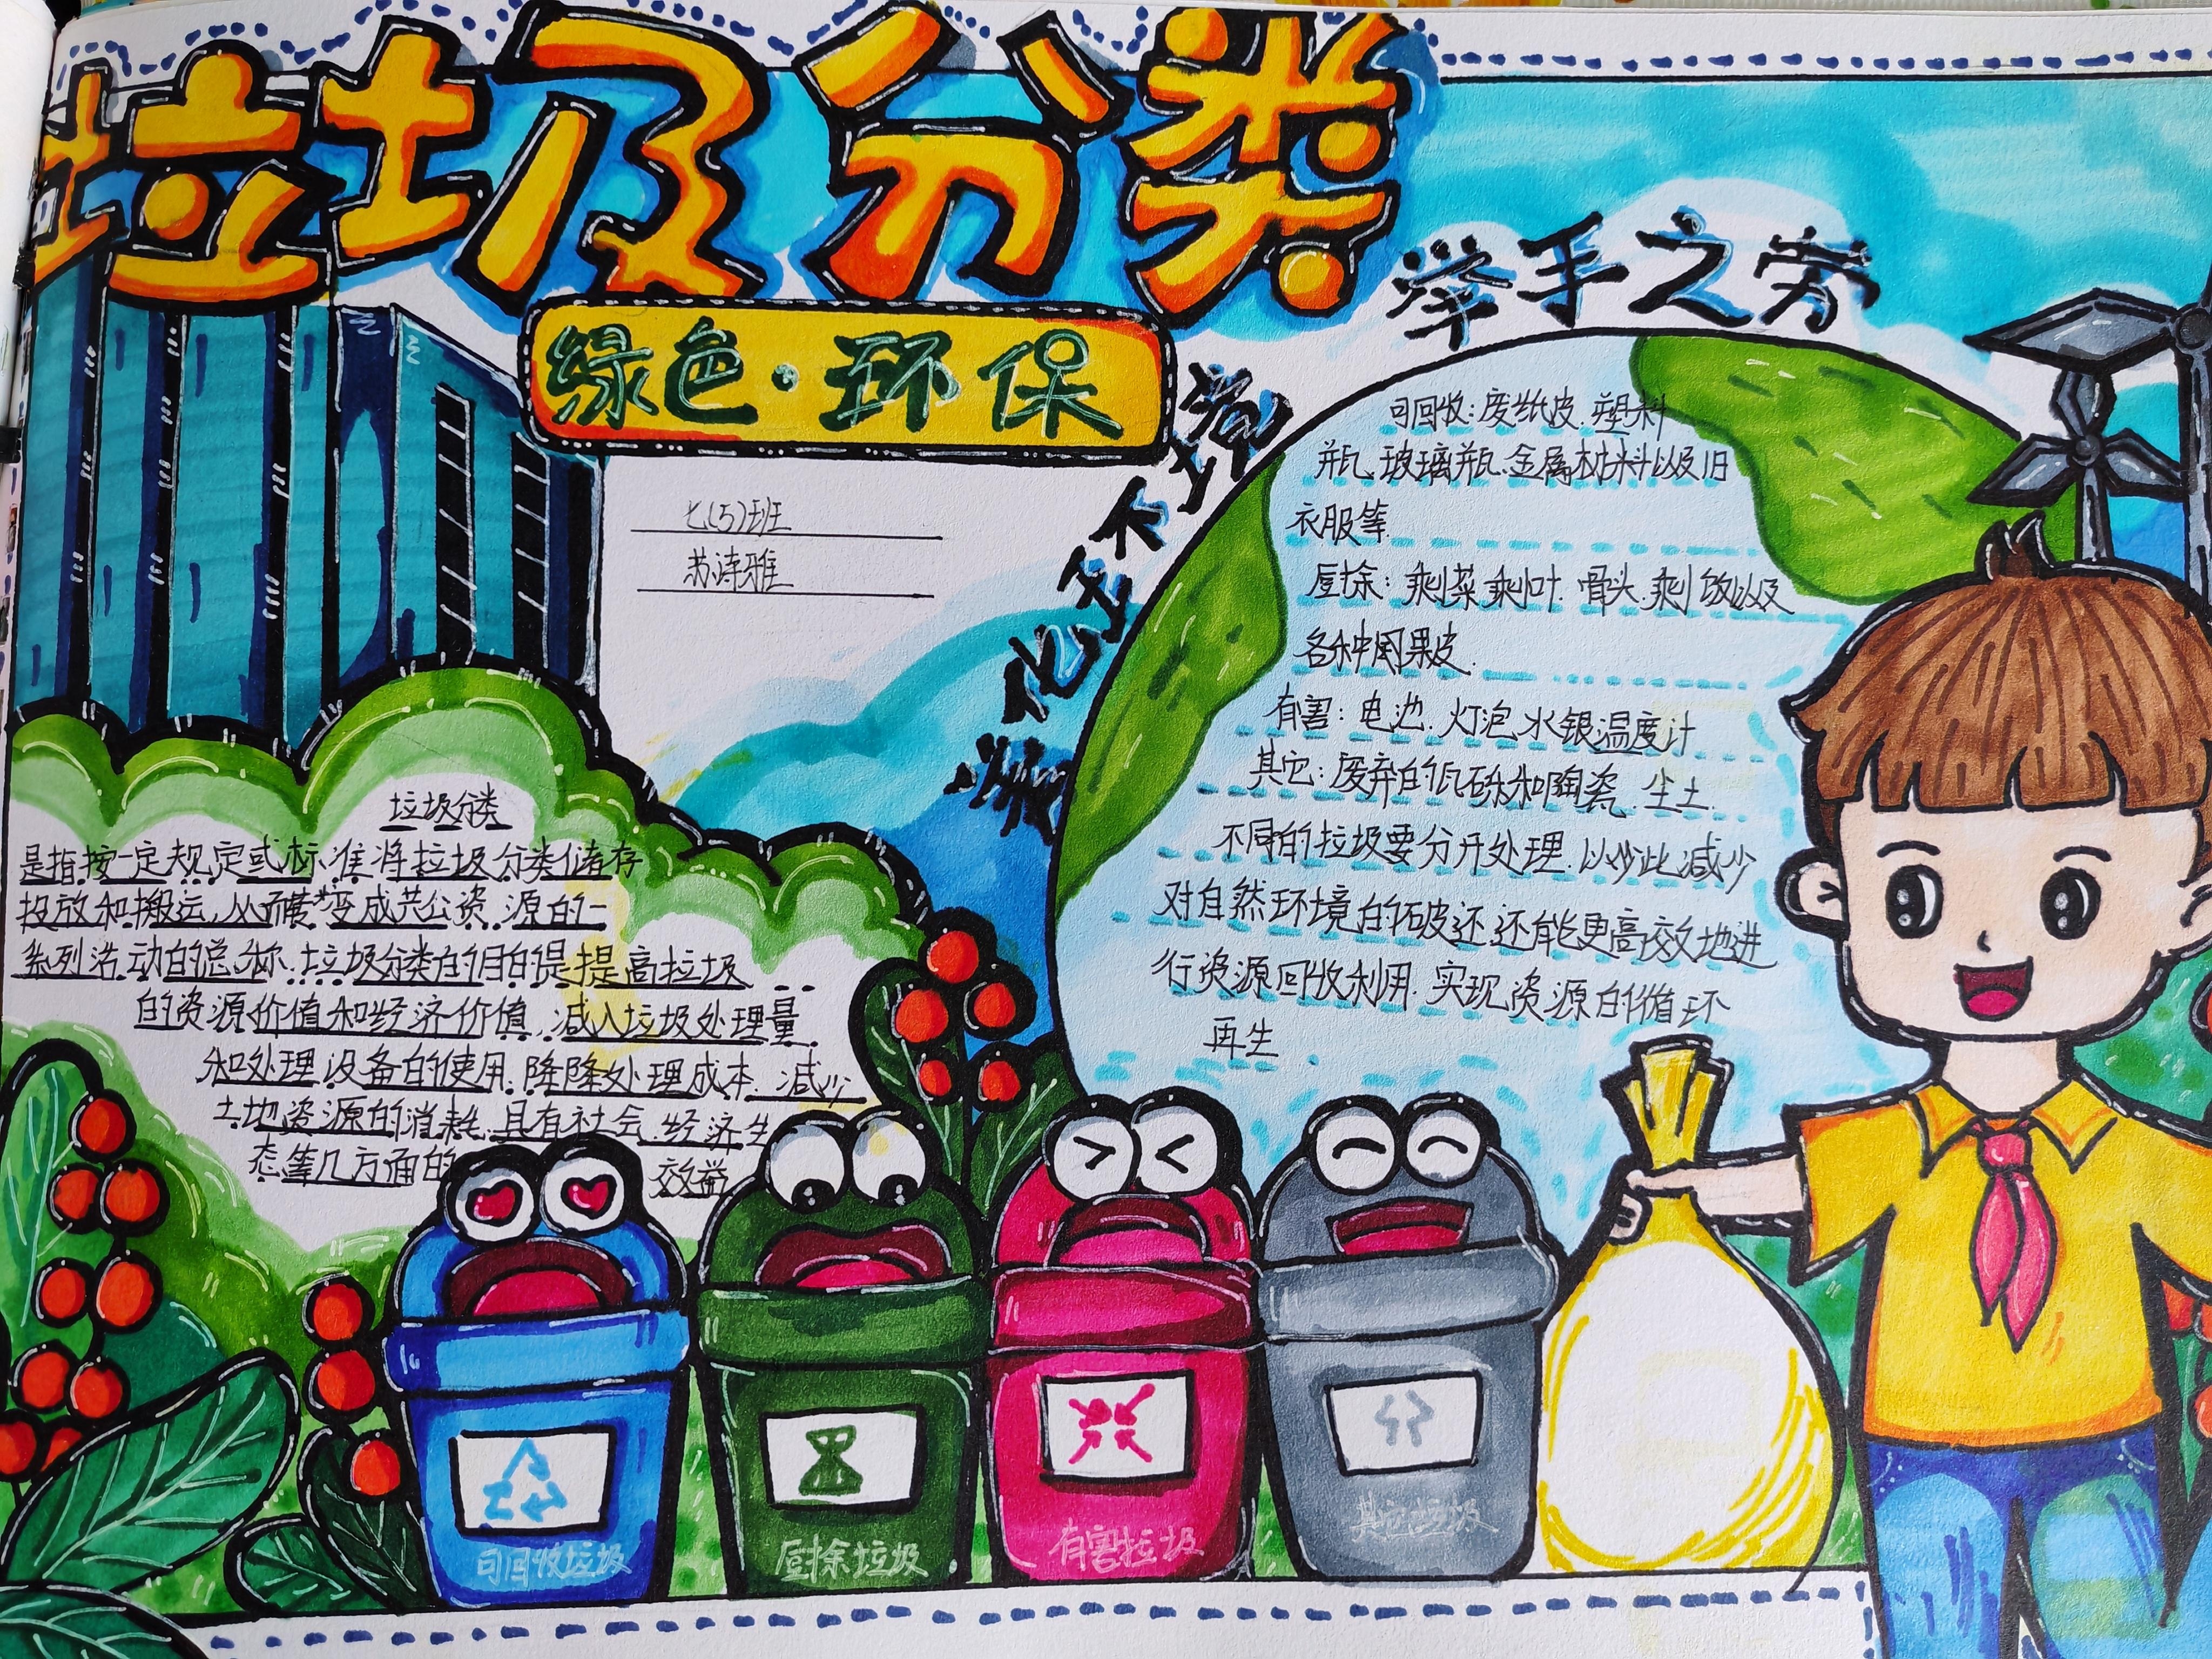 垃圾分类
绿色·环保
七(5)班
苏诗雅
美化环境
举手之劳
垃圾分类
是指按一定规定或标准将垃圾分类储存
投放和搬运,从而转变成共公资源的一
系列活动的总称.垃圾分类的目的是提高垃圾
的资源价值和经济价值,减入垃圾处理量
和处理设备的使用.降降处理成本.减少
土地资源的消耗.具有社会.经济生
态等几方面的 效益
可回收:废纸皮.塑料
瓶.玻璃瓶.金属材料以及旧
衣服等
厨余:剩菜剩叶.骨头.剩饭以及
各种果皮.
有害:电池.灯泡.水银温度计
其它:废弃的瓦砾和陶瓷.尘土.
不同的垃圾要分开处理.以此减少
对自然环境的破还.还能更高效地进
行资源回收利用.实现资源的循环
再生
可回收垃圾
厨余垃圾
有害垃圾
其它垃圾